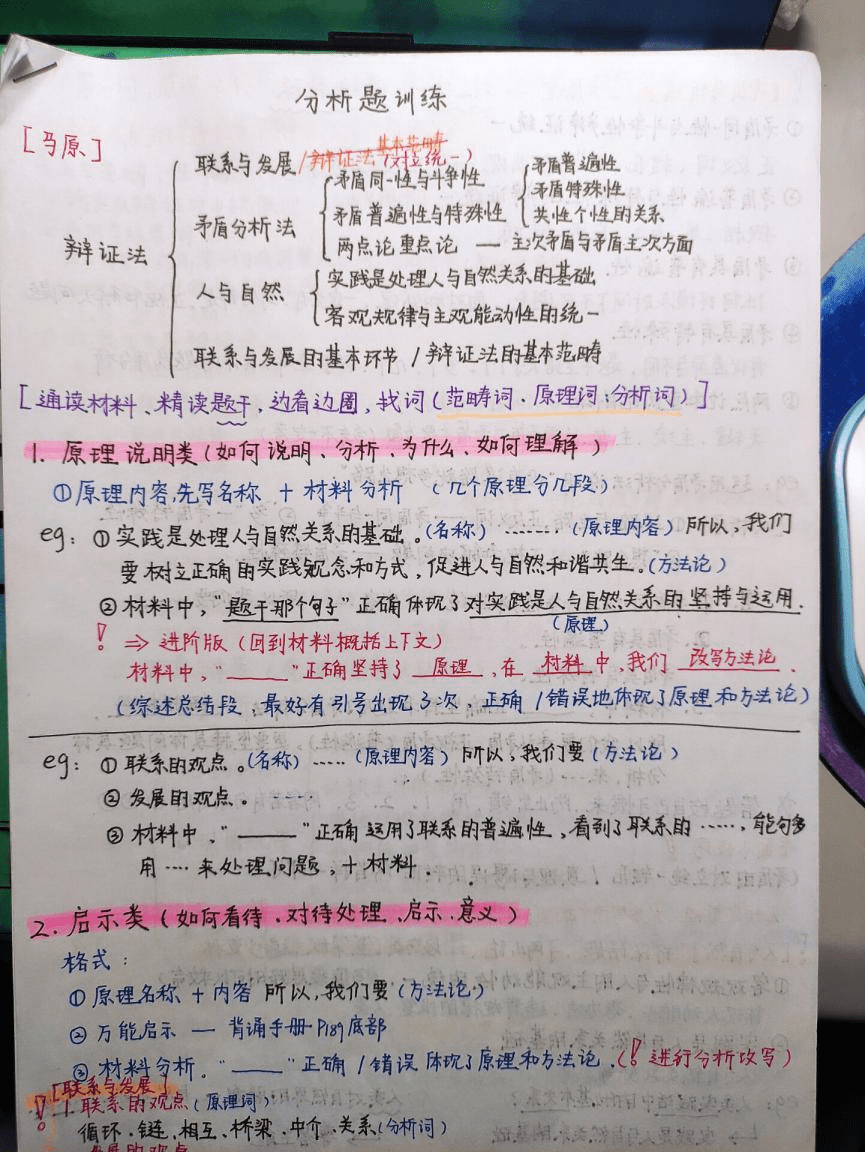 分析题训练
[马原]
辩证法
联系与发展/辩证法基本范畴(对立统一)
矛盾分析法
矛盾同一性与斗争性
矛盾普遍性与特殊性
矛盾普遍性
矛盾特殊性
共性个性的关系
两点论重点论 — 主次矛盾与矛盾主次方面
人与自然
实践是处理人与自然关系的基础
客观规律与主观能动性的统一
联系与发展的基本环节/辩证法的基本范畴
[通读材料、精读题干,边看边圈,找词(范畴词·原理词;分析词)]
1. 原理说明类(如何说明、分析、为什么、如何理解)
①原理内容,先写名称 + 材料分析 (几个原理分几段)
eg: ①实践是处理人与自然关系的基础。(名称) ……… (原理内容) 所以,我们
要树立正确的实践观念和方式,促进人与自然和谐共生。(方法论)
②材料中,“题干那个句子”正确体现了对实践是人与自然关系的坚持与运用.
(原理)
! ⇒ 进阶版(回到材料概括上下文)
材料中,“______”正确坚持了 原理 ,在 材料 中,我们 改写方法论 .
(综述总结段;最好有引号出现3次,正确/错误地体现了原理和方法论)
eg: ①联系的观点。(名称) ……(原理内容) 所以,我们要(方法论)
②发展的观点。- - -
③材料中,“______”正确运用了联系的普遍性,看到了联系的……,能够多
用 …… 来处理问题,+材料.
2. 启示类(如何看待、对待处理、启示、意义)
格式:
①原理名称 + 内容 所以,我们要(方法论)
②万能启示 — 背诵手册P189底部
③材料分析。“______”正确/错误体现了原理和方法论.(!进行分析改写)
[联系与发展]
! 1. 联系的观点(原理词):
循环、链、相互、桥梁、中介、关系(分析词)
发展的观点